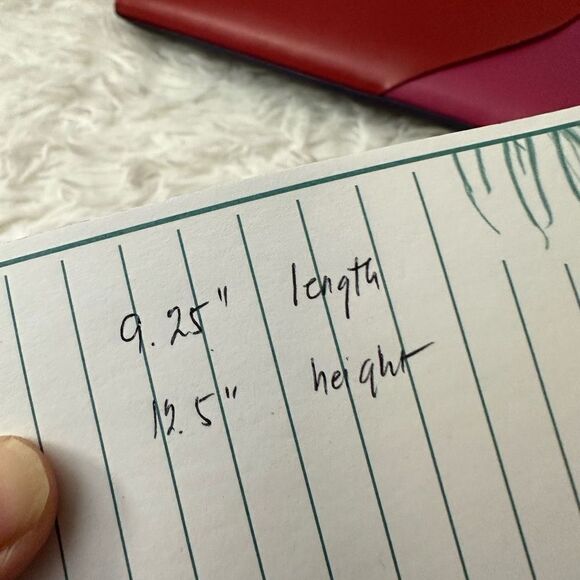 9.25" length
12.5" height